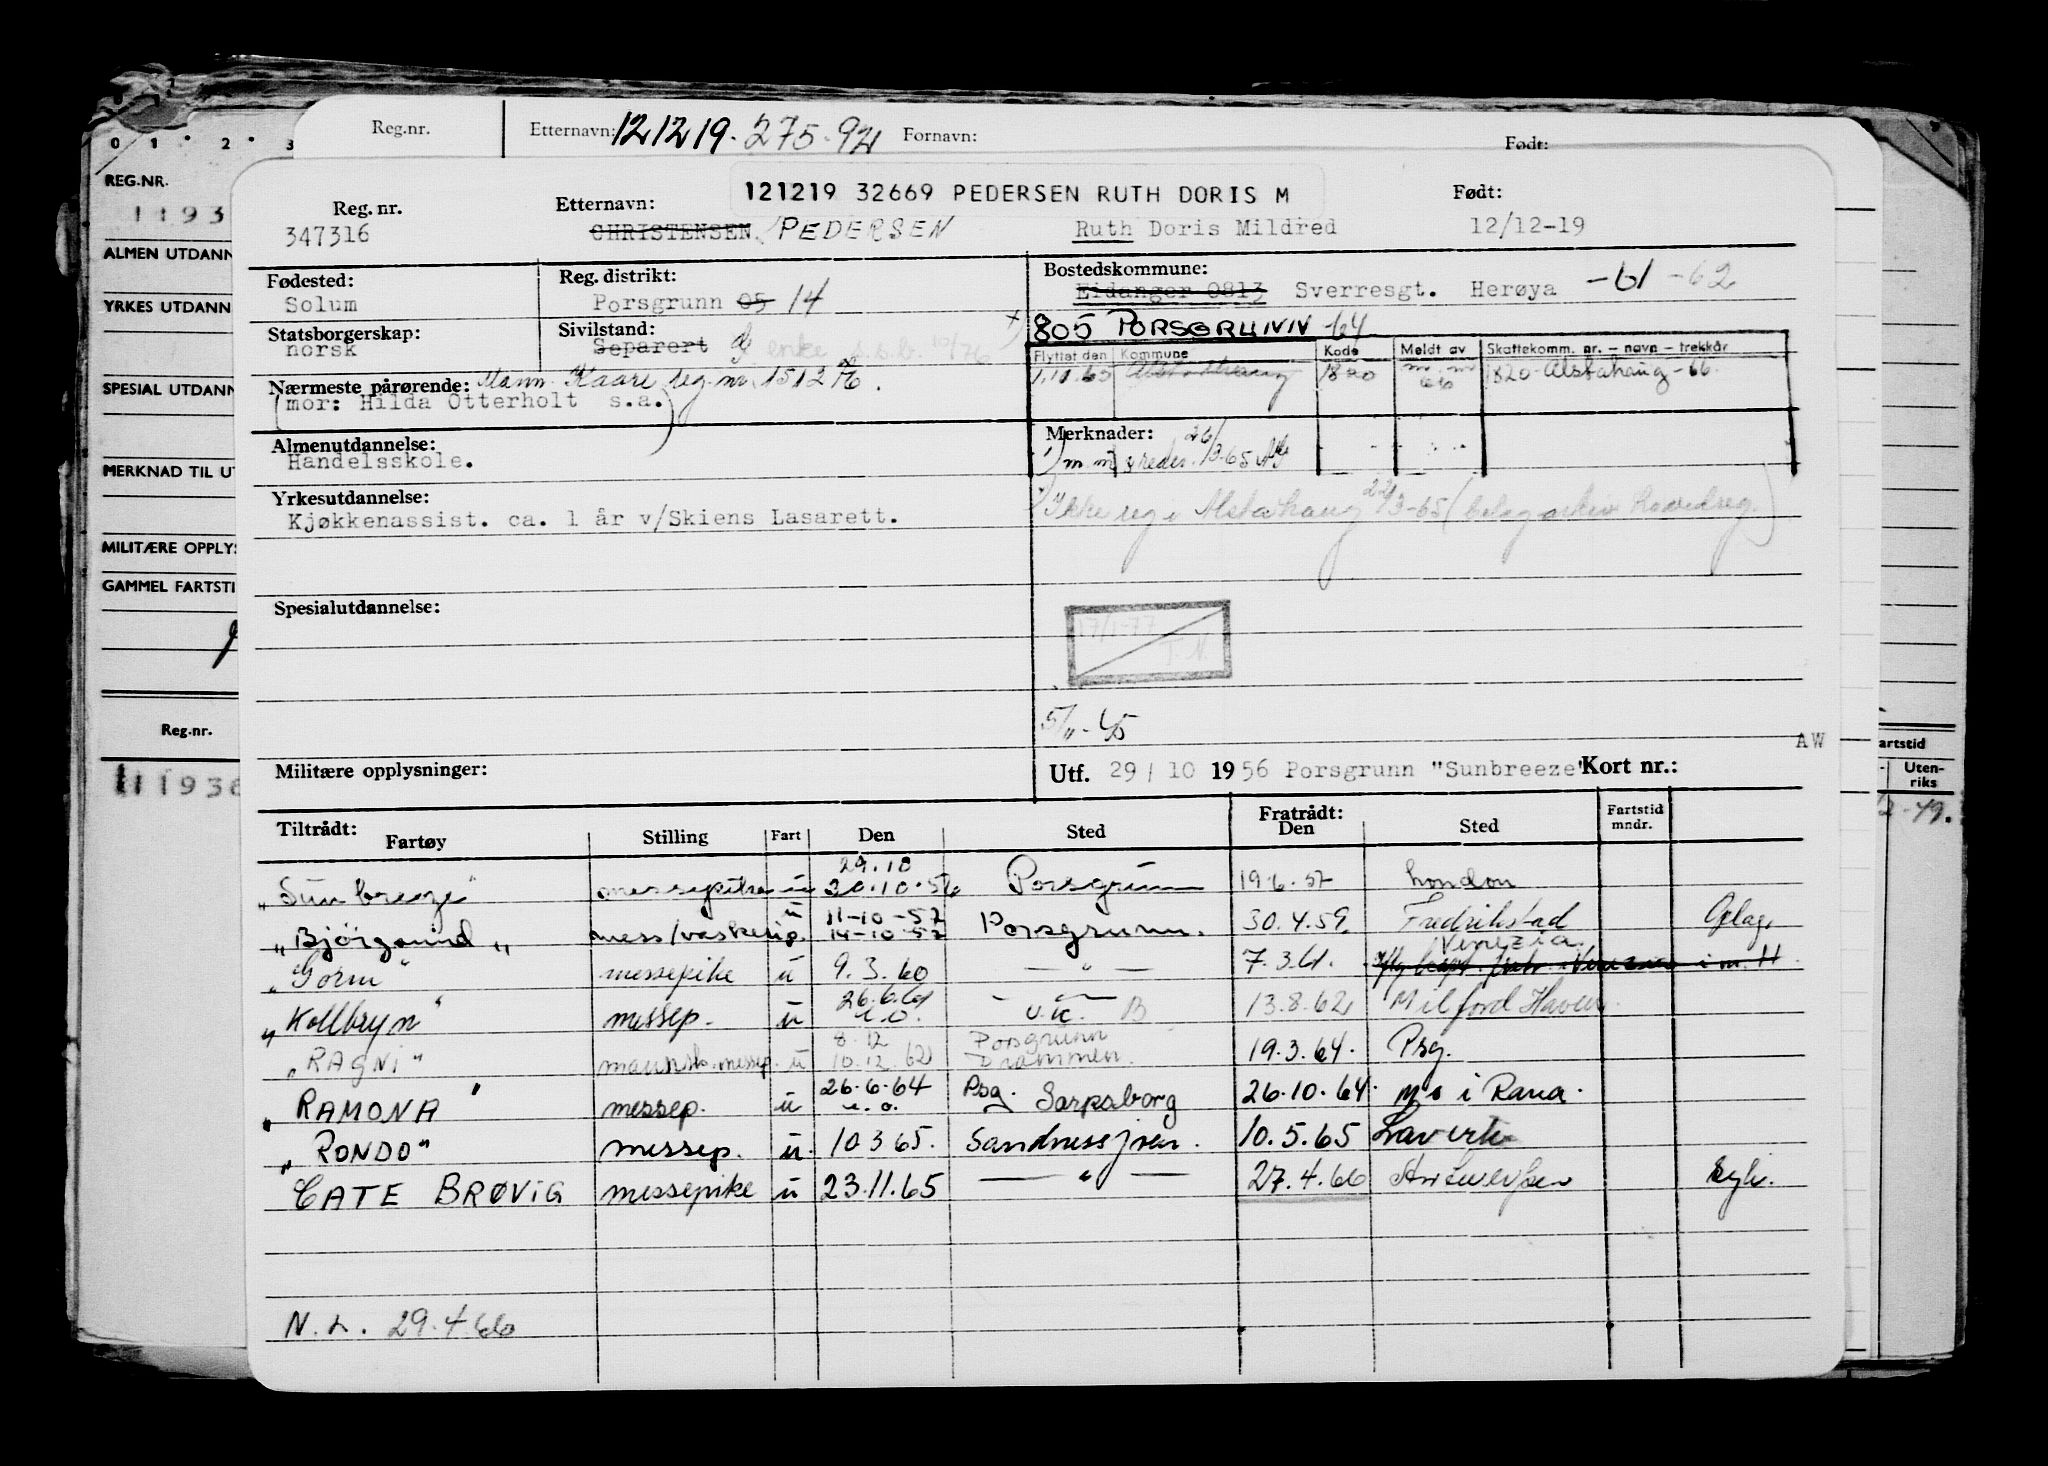 0 1 . 2 . 3
Reg.nr. Etternavn: 121219. 275.92 Fornavn: Født:
REG.NR.
1193
ALMEN UTDANN
YRKES UTDANN
SPESIAL UTDANN
MERKNAD TIL UT
MILITÆRE OPPLYS
GAMMEL FARTSTI
Reg.nr.
11936
121219 32669 PEDERSEN RUTH DORIS M
Reg. nr. Etternavn: Født:
347316 CHRISTENSEN / PEDERSEN Ruth Doris Mildred 12/12-19
Fødested: Reg. distrikt: Bostedskommune:
Solum Porsgrunn 05 14 Eidanger 0813 Sverresgt. Herøya -61 -62
Statsborgerskap: Sivilstand: 805 PORSGRUNN -64
norsk Separert g enke s.s.b. 10/76
Flyttet den Kommune Kode Meldt av Skattekomm. nr. – navn – trekkår
1.11.65 Alstahaug 1820 m.m 66 1820-Alstahaug-66.
Nærmeste pårørende: Mann Kaare reg.nr. 151276.
(mor: Hilda Otterholt s.a.)
Almenutdannelse: Merknader: 26/
Handelsskole. m.m 3.65
Yrkesutdannelse:
Kjøkkenassist. ca. 1 år v/Skiens Lasarett.
Ikke reg i Alstahaug 22/3-65 (belag arkiv hovedreg.)
Spesialutdannelse:
17/1-77
T.N.
5/11-65
AW
Militære opplysninger: Utf. 29/10 1956 Porsgrunn "Sunbreeze" Kort nr.:
artstid
Uten-
riks
-49.
Tiltrådt: Fratrådt: Fartstid mndr.
Fartøy Stilling Fart Den Sted Den Sted
29.10
"Sunbreeze" messepike u 30.10.56 Porsgrunn 19.6.57 London
u 11-10-57
"Bjørgsund" mess/vaskerip. 14-10-57 Porsgrunn. 30.4.59 Fredrikstad Oplag.
Venezia
"Gorm" messepike u 9.3.60 — " — 7.3.61.
26.6.61 — " —
"Kollbryn" messep. u u.o. U.K. B 13.8.62 Milford Haven
8.12 Porsgrunn
"RAGNI" mannsk.messep. u 10.12.62 Drammen. 19.3.64. Psg.
"RAMONA" messep. u 26.6.64 u.o. Psg. Sarpsborg 26.10.64. Mo i Rana.
"RONDO" messep. u. 10 3 65. Sandnessjøen. 10.5.65
CATE BRØVIG messepike u 23.11.65 — " — 27.4.66 Antwerpen syk.
N.L. 29.4.66